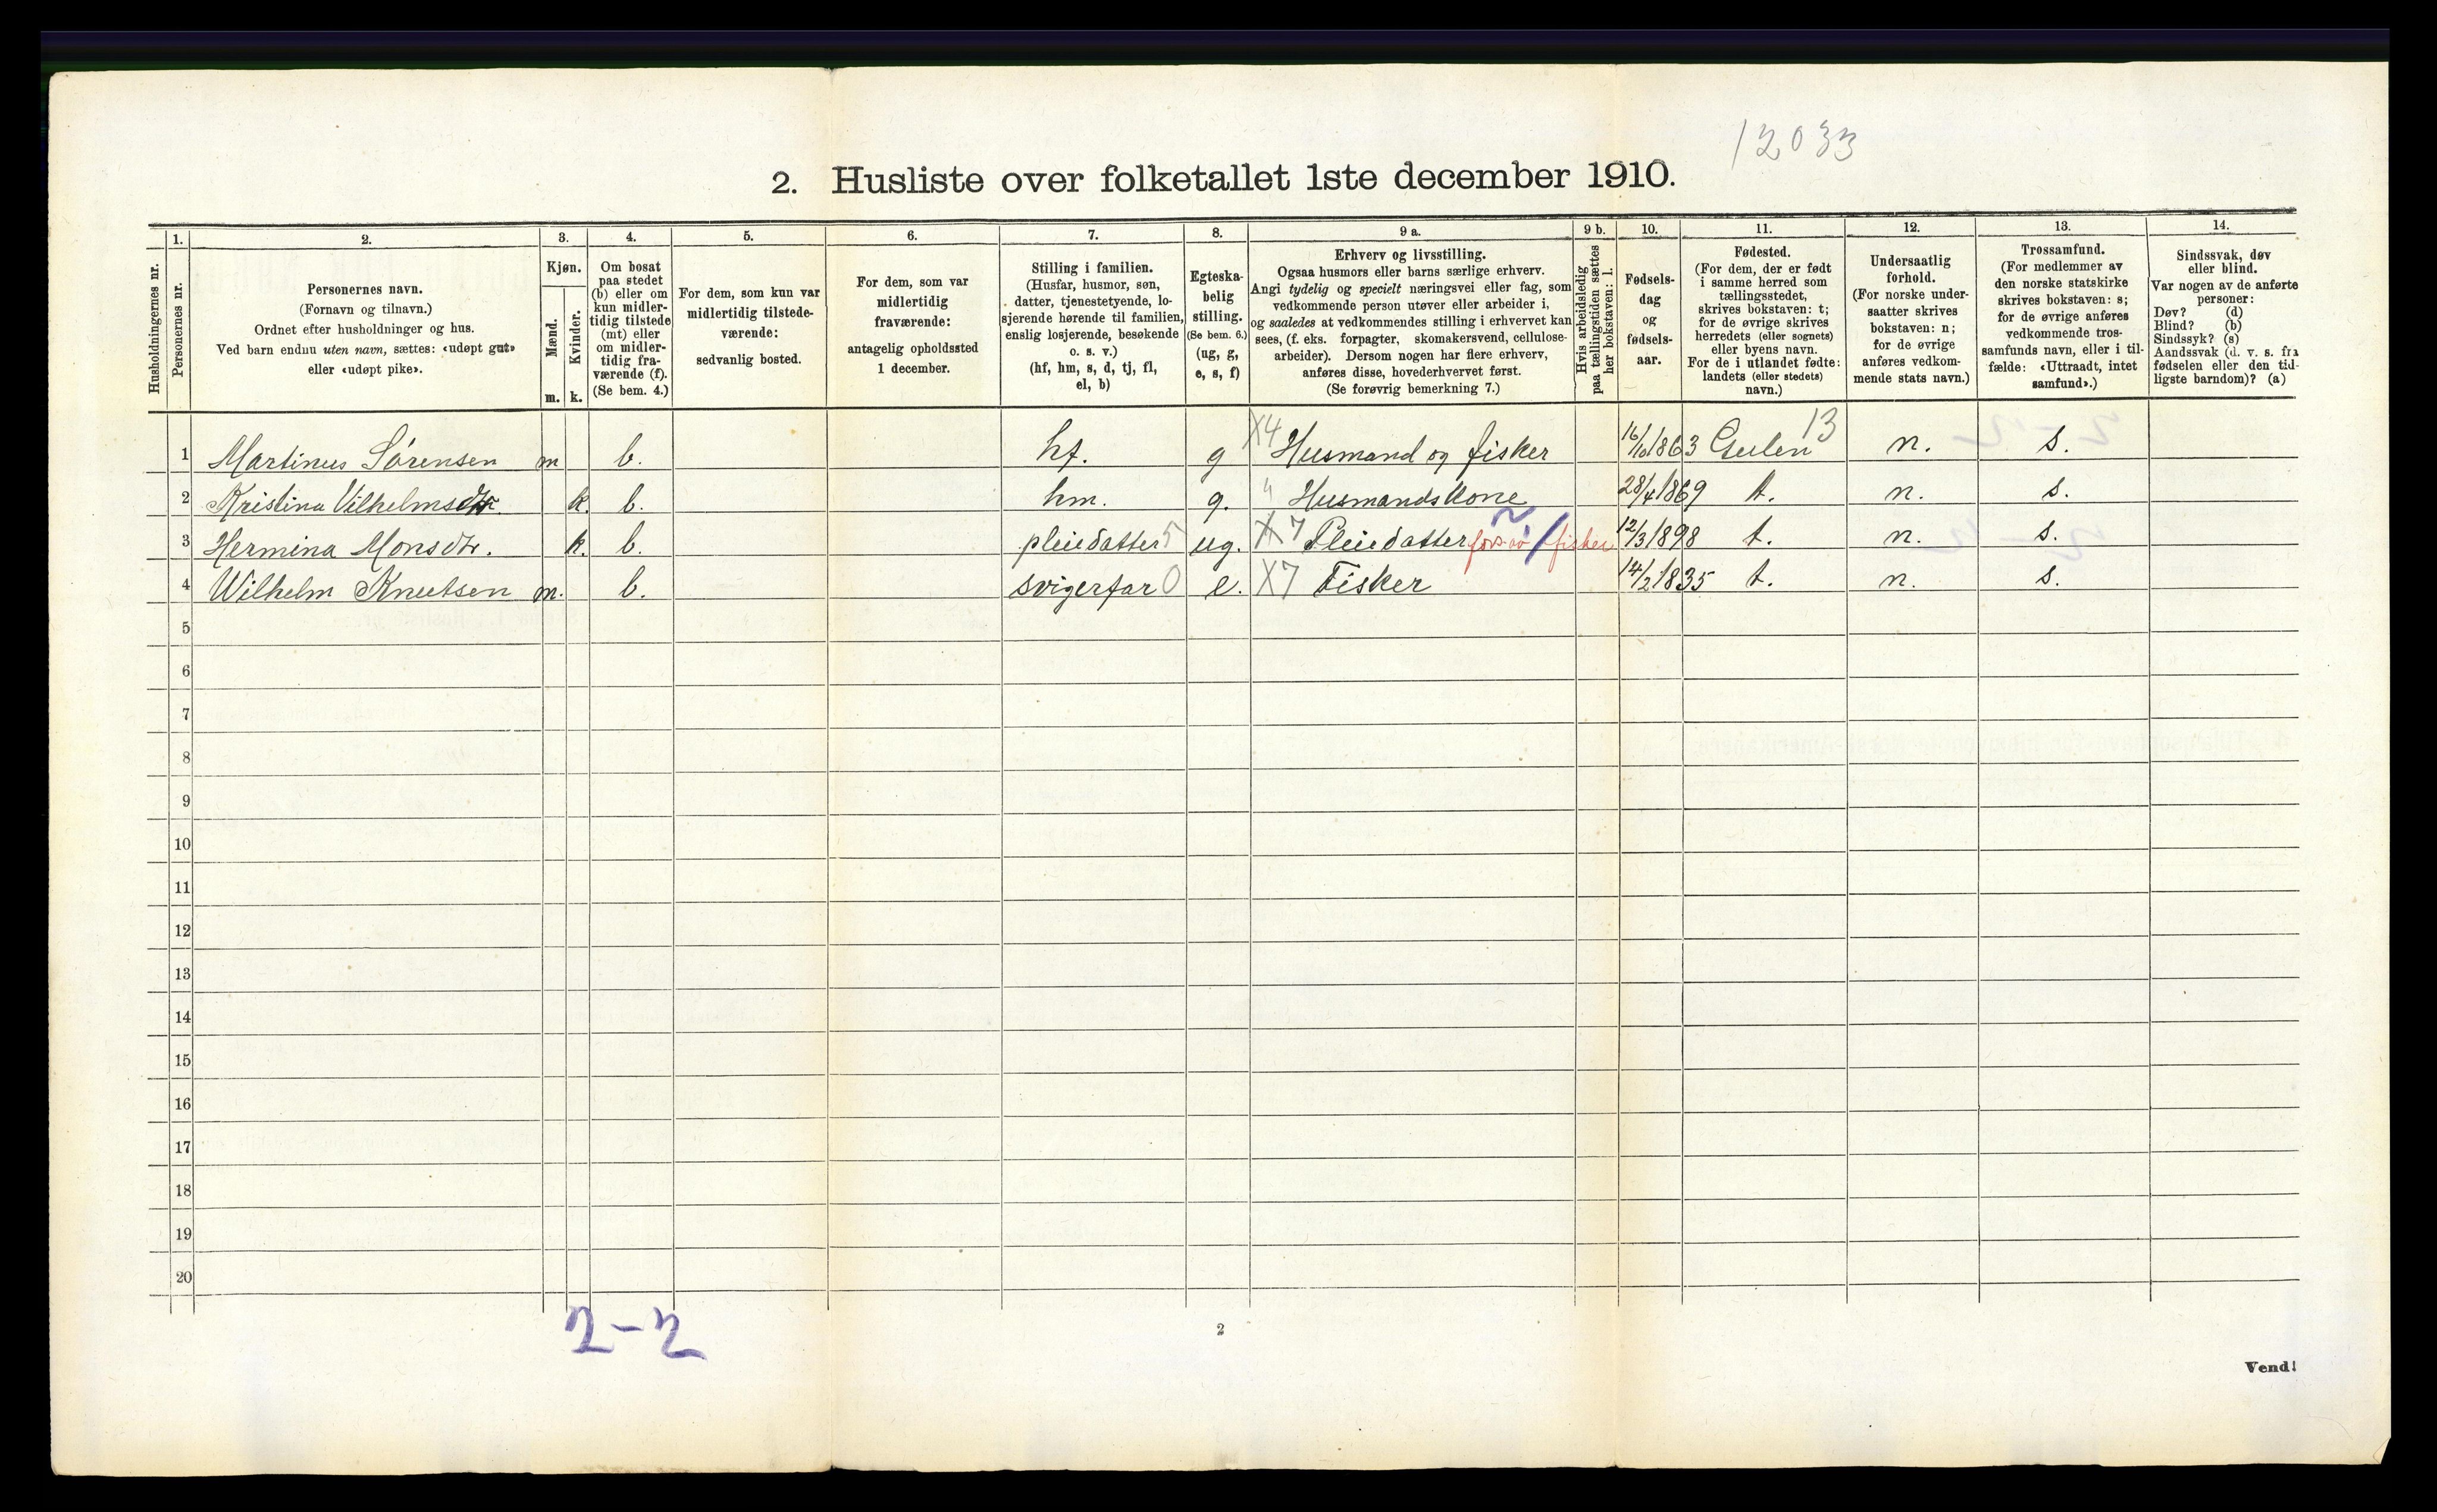 12033
2. Husliste over folketallet 1ste december 1910.
Husholdningernes nr.
1.
Personernes nr.
2.
Personernes navn.
(Fornavn og tilnavn.)
Ordnet efter husholdninger og hus.
Ved barn endnu uten navn, sættes: «udøpt gut»
eller «udøpt pike».
3.
Kjøn.
Mænd.
Kvinder.
m. k.
4.
Om bosat
paa stedet
(b) eller om
kun midler-
tidig tilstede
(mt) eller
om midler-
tidig fra-
værende (f).
(Se bem. 4.)
5.
For dem, som kun var
midlertidig tilstede-
værende:
sedvanlig bosted.
6.
For dem, som var
midlertidig
fraværende:
antagelig opholdssted
1 december.
7.
Stilling i familien.
(Husfar, husmor, søn,
datter, tjenestetyende, lo-
sjerende hørende til familien,
enslig losjerende, besøkende
o. s. v.)
(hf, hm, s, d, tj, fl,
el, b)
8.
Egteska-
belig
stilling.
(Se bem. 6.)
(ug, g,
e, s, f)
9 a.
Erhverv og livsstilling.
Ogsaa husmors eller barns særlige erhverv.
Angi tydelig og specielt næringsvei eller fag, som
vedkommende person utøver eller arbeider i,
og saaledes at vedkommendes stilling i erhvervet kan
sees, (f. eks. forpagter, skomakersvend, cellulose-
arbeider). Dersom nogen har flere erhverv,
anføres disse, hovederhvervet først.
(Se forøvrig bemerkning 7.)
9 b.
Hvis arbeidsledig
paa tællingstiden sættes
her bokstaven: l.
10.
Fødsels-
dag
og
fødsels-
aar.
11.
Fødested.
(For dem, der er født
i samme herred som
tællingsstedet,
skrives bokstaven: t;
for de øvrige skrives
herredets (eller sognets)
eller byens navn.
For de i utlandet fødte:
landets (eller stedets)
navn.)
12.
Undersaatlig
forhold.
(For norske under-
saatter skrives
bokstaven: n;
for de øvrige
anføres vedkom-
mende stats navn.)
13.
Trossamfund.
(For medlemmer av
den norske statskirke
skrives bokstaven: s;
for de øvrige anføres
vedkommende tros-
samfunds navn, eller i til-
fælde: «Uttraadt, intet
samfund».)
14.
Sindssvak, døv
eller blind.
Var nogen av de anførte
personer:
Døv? (d)
Blind? (b)
Sindssyk? (s)
Aandssvak (d. v. s. fra
fødselen eller den tid-
ligste barndom)? (a)
1 Martinus Sørensen m b. hf. g X4 Husmand og fisker 16/10 1863 Gulen 13 n. s.
2 Kristina Vilhelmsdtr. k. b. hm. g. " Husmandskone 28/4 1869 t. n. s.
3 Hermina Monsdtr. k. b. pleiedatter 5 ug. X7 Pleiedatter fisker 12/3 1898 t. n. s.
4 Wilhelm Knutsen m. b. svigerfar 0 e. X7 Fisker 14/2 1835 t. n. s.
5
6
7
8
9
10
11
12
13
14
15
16
17
18
19
20
2-2
2
Vend!